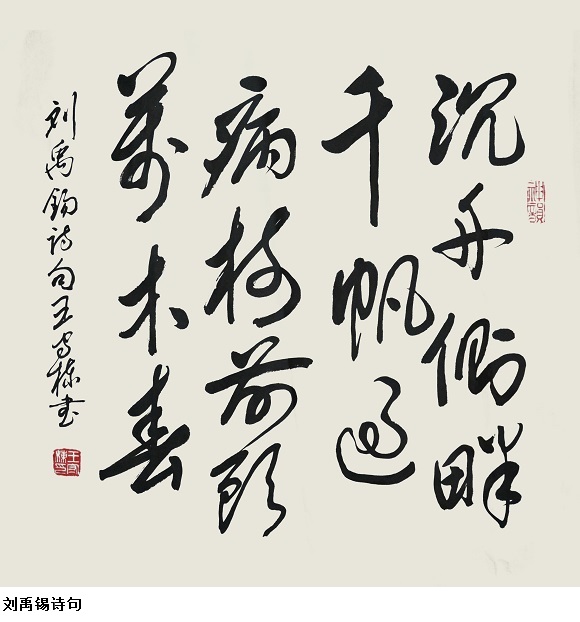 沉舟侧畔
千帆過
病树前頭
萬木春
刘禹锡诗句王栋书
刘禹锡诗句